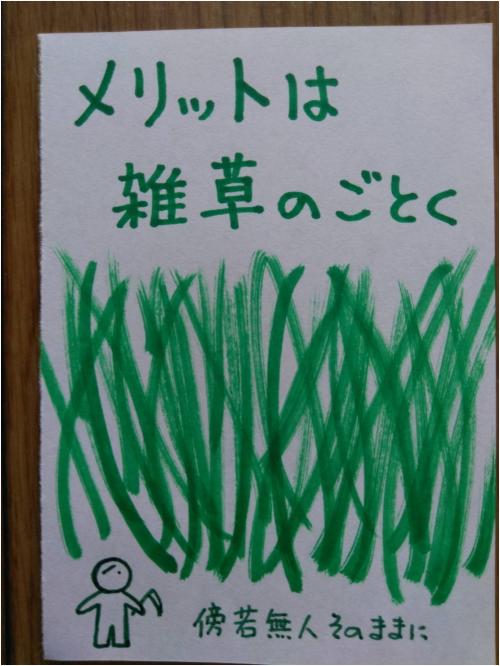 メリットは
雑草のごとく
傍若無人そのままに